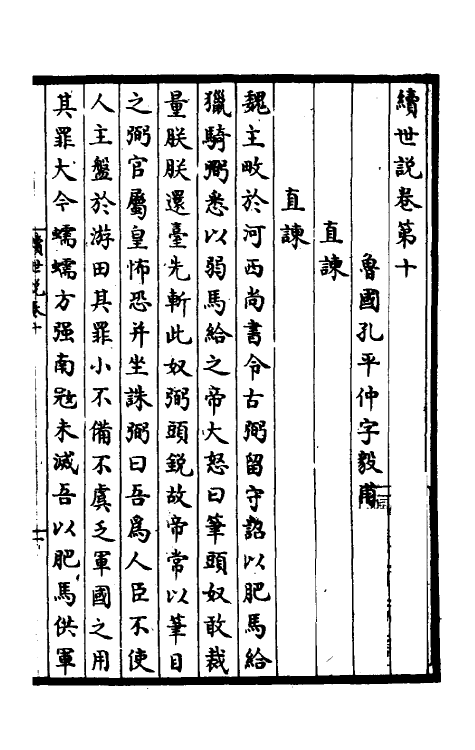 續世說卷第十
魯國孔平仲字毅甫
直諫
直諫
魏主畋於河西尚書令古弼留守詔以肥馬給
獵騎弼悉以弱馬給之帝大怒曰筆頭奴敢裁
量朕朕還臺先斬此奴弼頭鋭故帝常以筆目
之弼官屬皇怖恐并坐誅弼曰吾爲人臣不使
人主盤於游田其罪小不備不虞乏軍國之用
其罪大今蠕蠕方强南冦未滅吾以肥馬供軍
續世説卷十